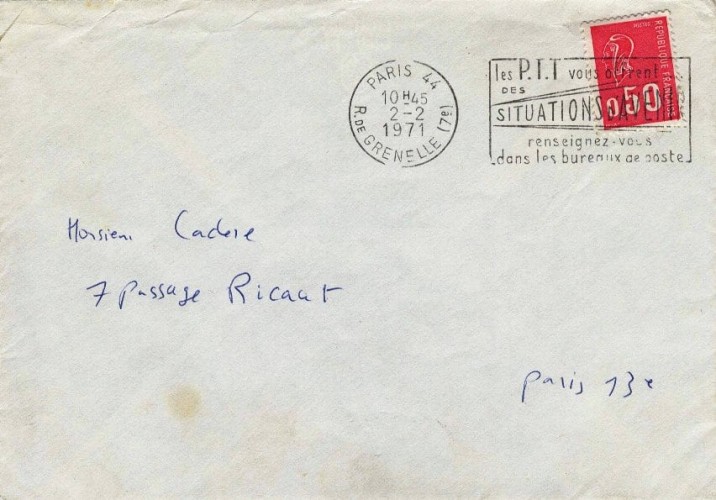 PARIS 44
10H45
2-2
1971
R. DE GRENELLE (7e)
les P.T.T vous offrent
DES
SITUATIONS D'AVENIR
renseignez-vous
dans les bureaux de poste
REPUBLIQUE FRANÇAISE
0,50
Monsieur Cadere
7 passage Ricaut
Paris 13e